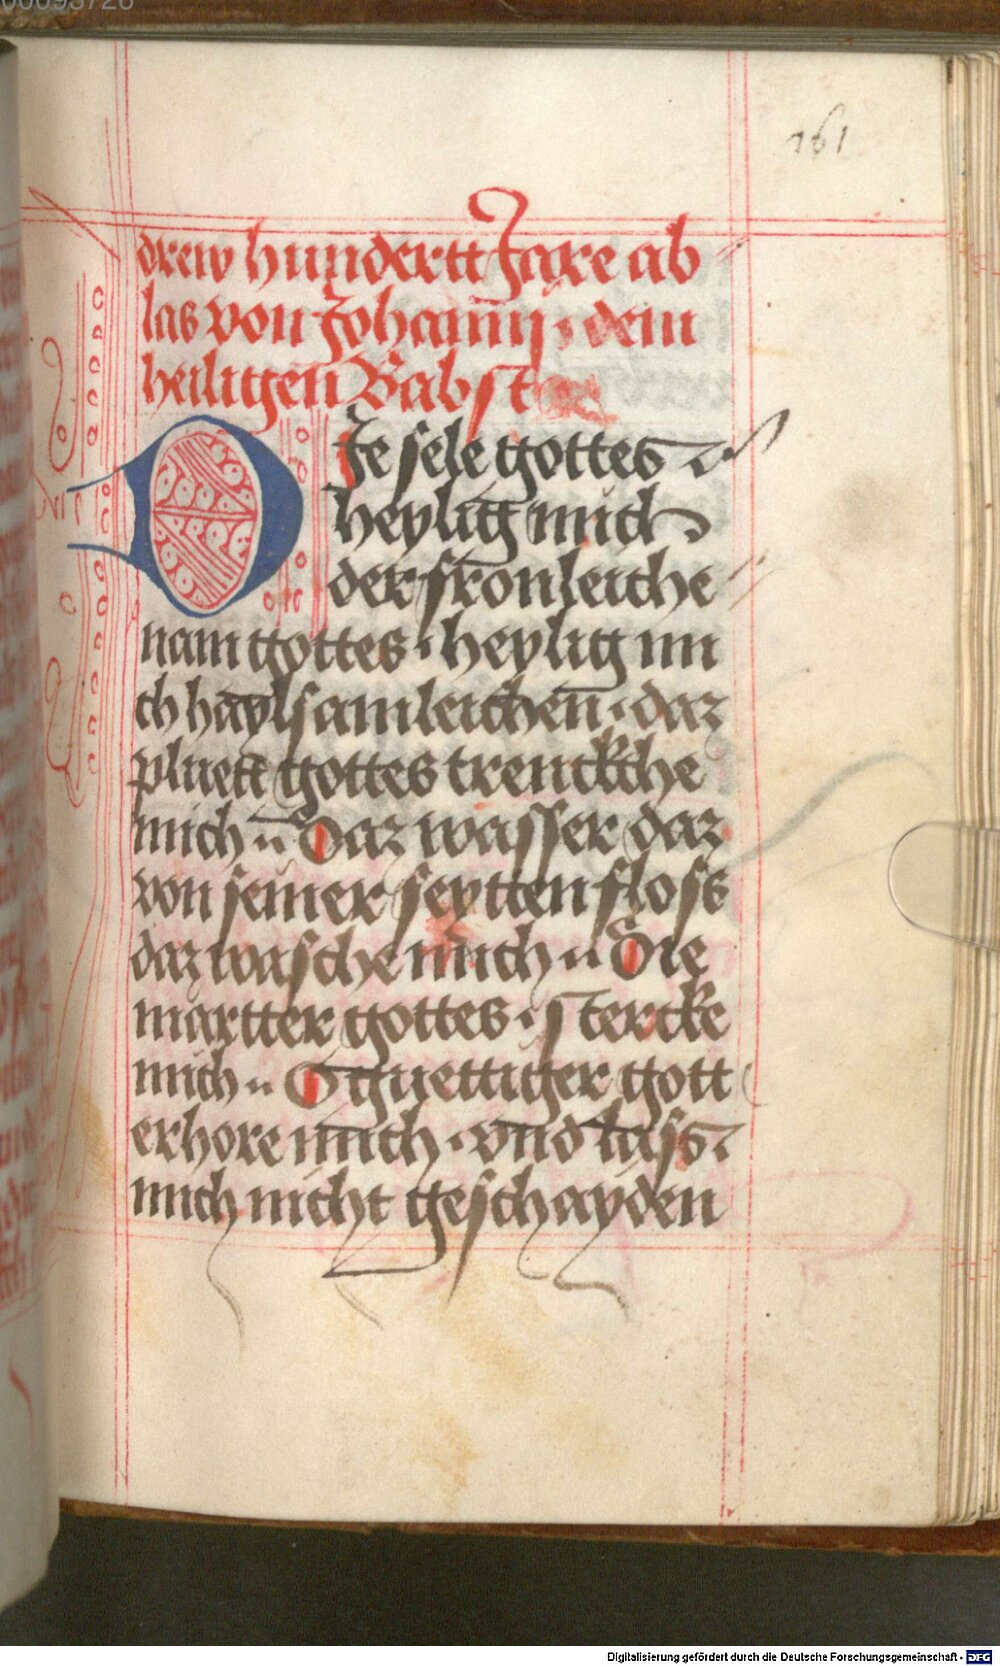 00093726
161
drew hundertt Jare ab
las von Johannij · dem
heiligen Babst
DIe sele gottes
heylig mich
der fronleiche
nam gottes · heylig mi
ch haylsamleichen · daz
pluett gottes trenckche
mich ·· Daz wasser daz
von seiner seytten floss
daz wasche mich ·· Die
martter gottes · stercke
mich ·· O guettiger gott
erhore mich · vnd lass
mich nicht geschayden
Digitalisierung gefördert durch die Deutsche Forschungsgemeinschaft - DFG